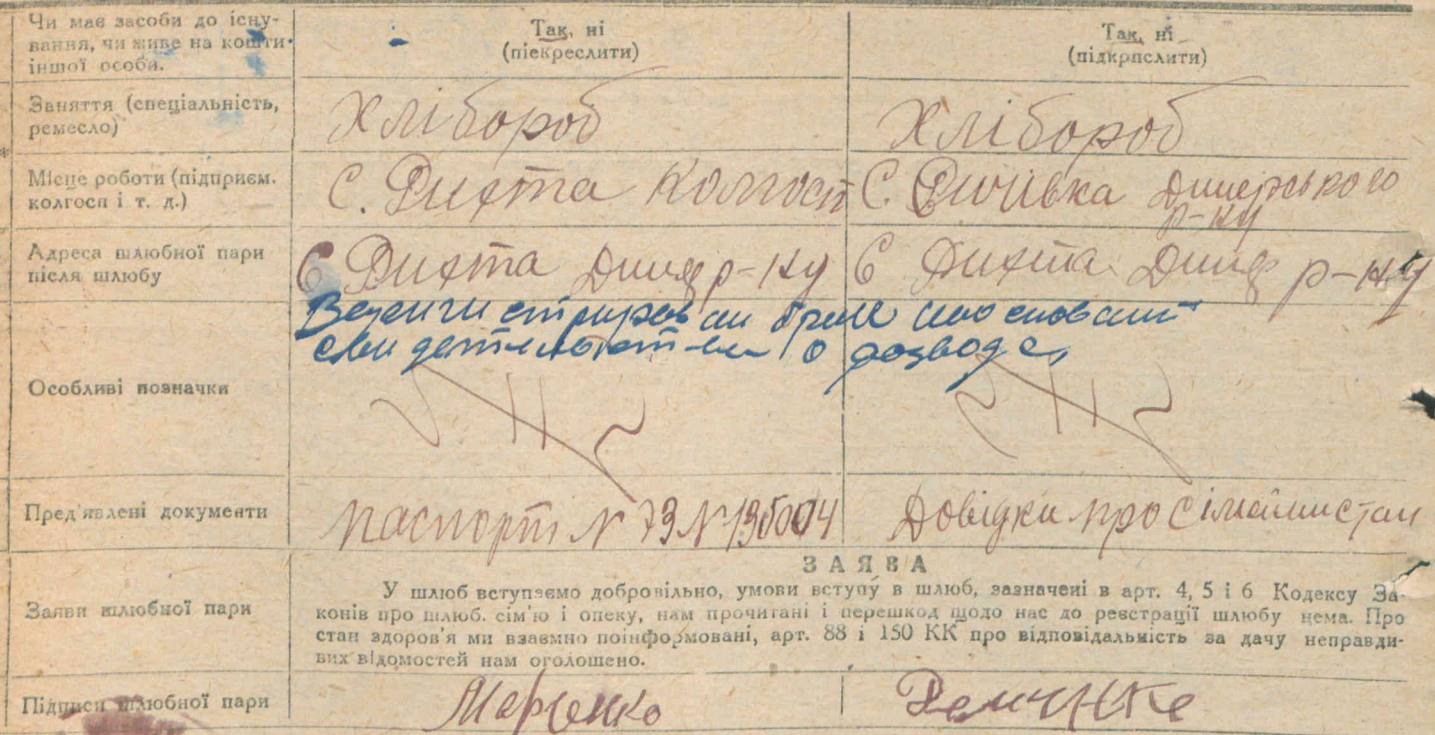 Чи має засоби до існу-
вання, чи живе на кошти
іншої особи.
Так, ні
(піекреслити)
Так, ні
(підкрпслити)
Заняття (спеціальність,
ремесло)
Хлібороб
Хлібороб
Місце роботи (підприєм.
колгосп і т. д.)
С. Рихта Колгосп
С. Димерського
р-ну
Адреса шлюбної пари
після шлюбу
С Рихта Димер р-ну
С Рихта Димер р-ну
о разводе
Особливі позначки
Пред'явлені документи
Паспорт №
Довідки про сімейни стан
Заяви шлюбної пари
ЗАЯВА
У шлюб вступаємо добровільно, умови вступу в шлюб, зазначені в арт. 4, 5 і 6 Кодексу За-
конів про шлюб. сім'ю і опеку, нам прочитані і перешкод щодо нас до реєстрації шлюбу нема. Про
стан здоров'я ми взаємно поінформовані, арт. 88 і 150 КК про відповідальність за дачу неправди-
вих відомостей нам оголошено.
Підписи шлюбної пари
Марченко